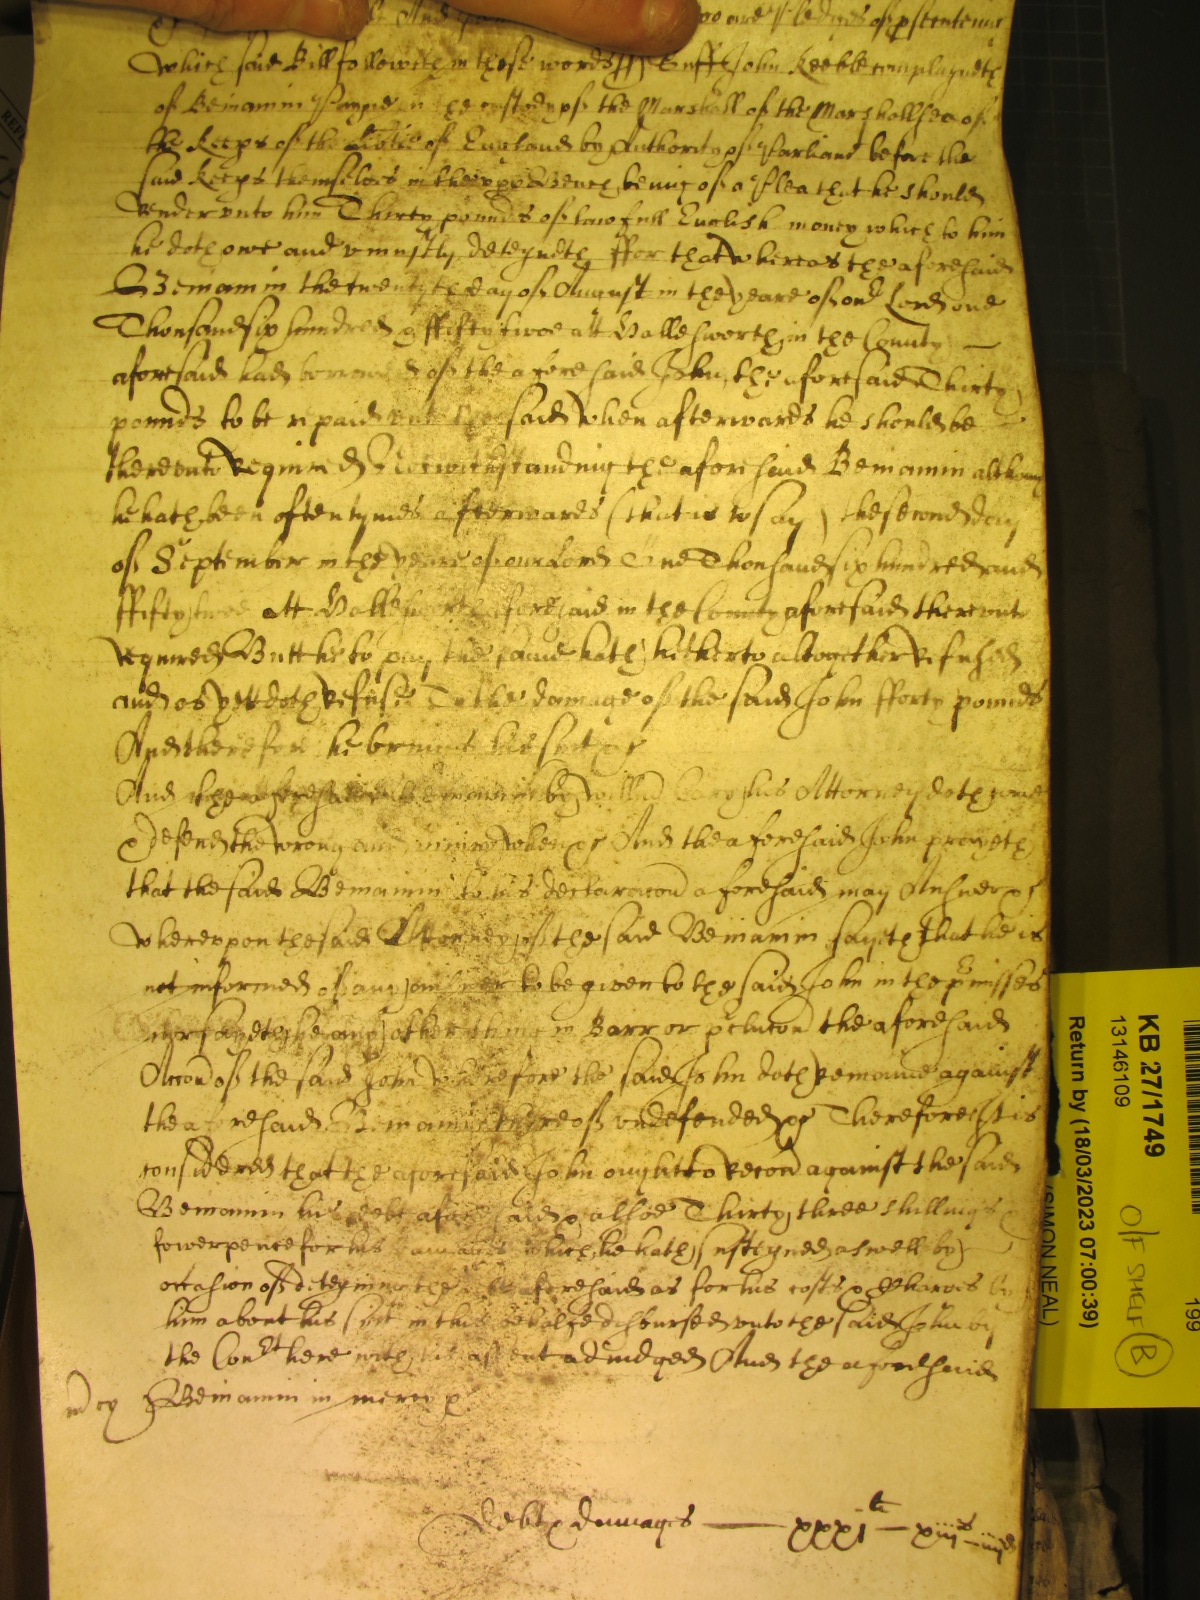 are Pledges of psecuteing
which said Bill followeth in these words ss Suff ss John Keeble complayneth
of Beniamin in the custody of the Marshall of the Marshallsea of
the Keeps of the Libtie of England by Authority of Parliamt before the
said Keeps themselves in the vpp Bench being of a Plea that he should
render vnto him Thirty pounds of lawfull English money which to him
he doth owe and vniustly deteyneth ffor that whereas the aforesaid
Beniamin the twentyth day of August in the yeare of our Lord one
Thousand six hundred & ffifty twoe att Hallesworth in the County
aforesaid had borrowed of the aforesaid John the aforesaid Thirty
pounds to be repaid said when afterwards he should be
therevnto required Notwithstanding the aforesaid Beniamin although
he hath been oftentymes afterwards (that is to say) the second day
of September in the yeare of our Lord One Thousand six hundred and
ffifty twoe att Hallesworth aforesaid in the County aforesaid therevnto
required Butt he to pay the same hath hitherto altogether refused
and as yett doth refuse To the damage of the said John fforty pounds
And therefore he bringes his suit &c
And the aforesaid Beniamin by his Attorney doth come
& defend the wrong and iniurie when &c And the aforesaid John prayeth
that the said Beniamin to his declaracon aforesaid may Answer &c
wherevpon the said Attorney of the said Beniamin sayeth that he is
not informed of any answer to be given to the said John in the pmisses
nor sayeth he any other thing in Barr or pclucon the aforesaid
Accon of the said John wherefore the said John doth remaine against
the aforesaid Beniamin thereof vndefended &c Therefore it is
considered that the aforesaid John ought to recov against the said
Beniamin his debt aforesaid & alsoe Thirty three shillings &
fower pence for his damages which he hath susteyned aswell by
occasion of deteyning the debt aforesaid as for his costs & charges by
him about his suit in this behalfe disbursed vnto the said John by
the Court here with his assent adiudged And the aforesaid
mcy Beniamin in mercy &c
Debt & damages — xxxi li — xiij s — iiij d
KB 27/1749
13146109
Return by (18/03/2023 07:00:39)
(SIMON NEAL)
O/F SHELF B
199